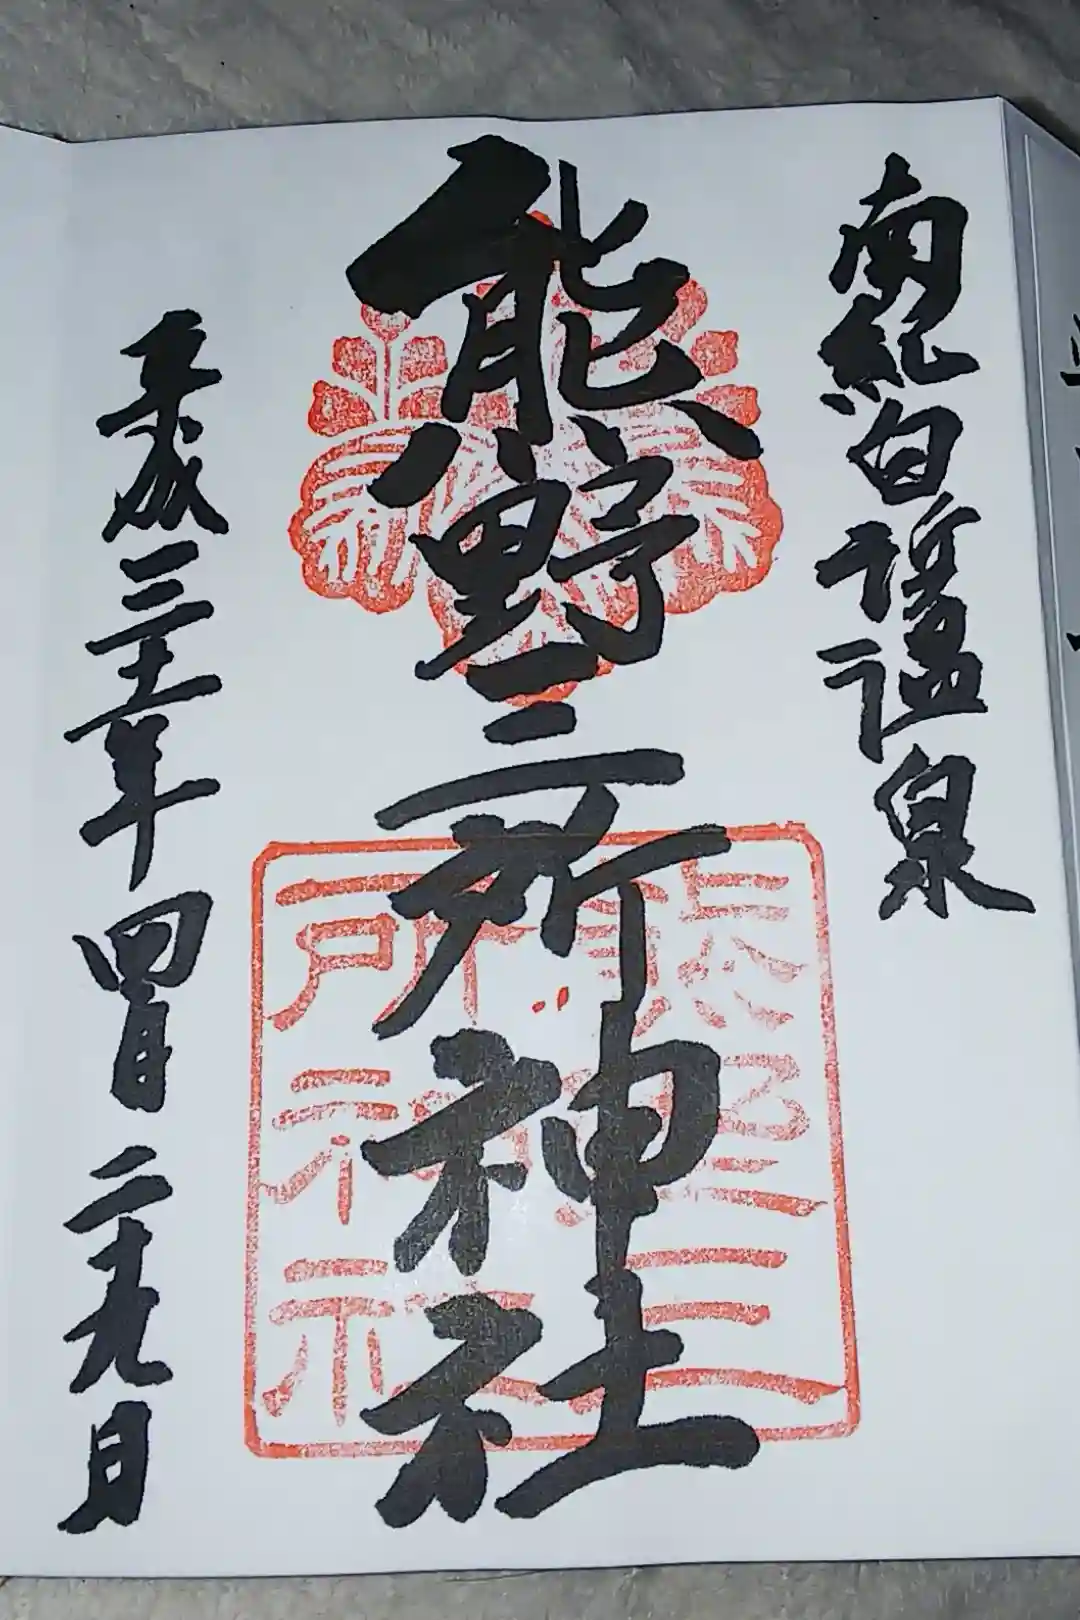 南紀白浜温泉
熊野三所神社
平成三十一年四月二十九日
熊野三
所神社